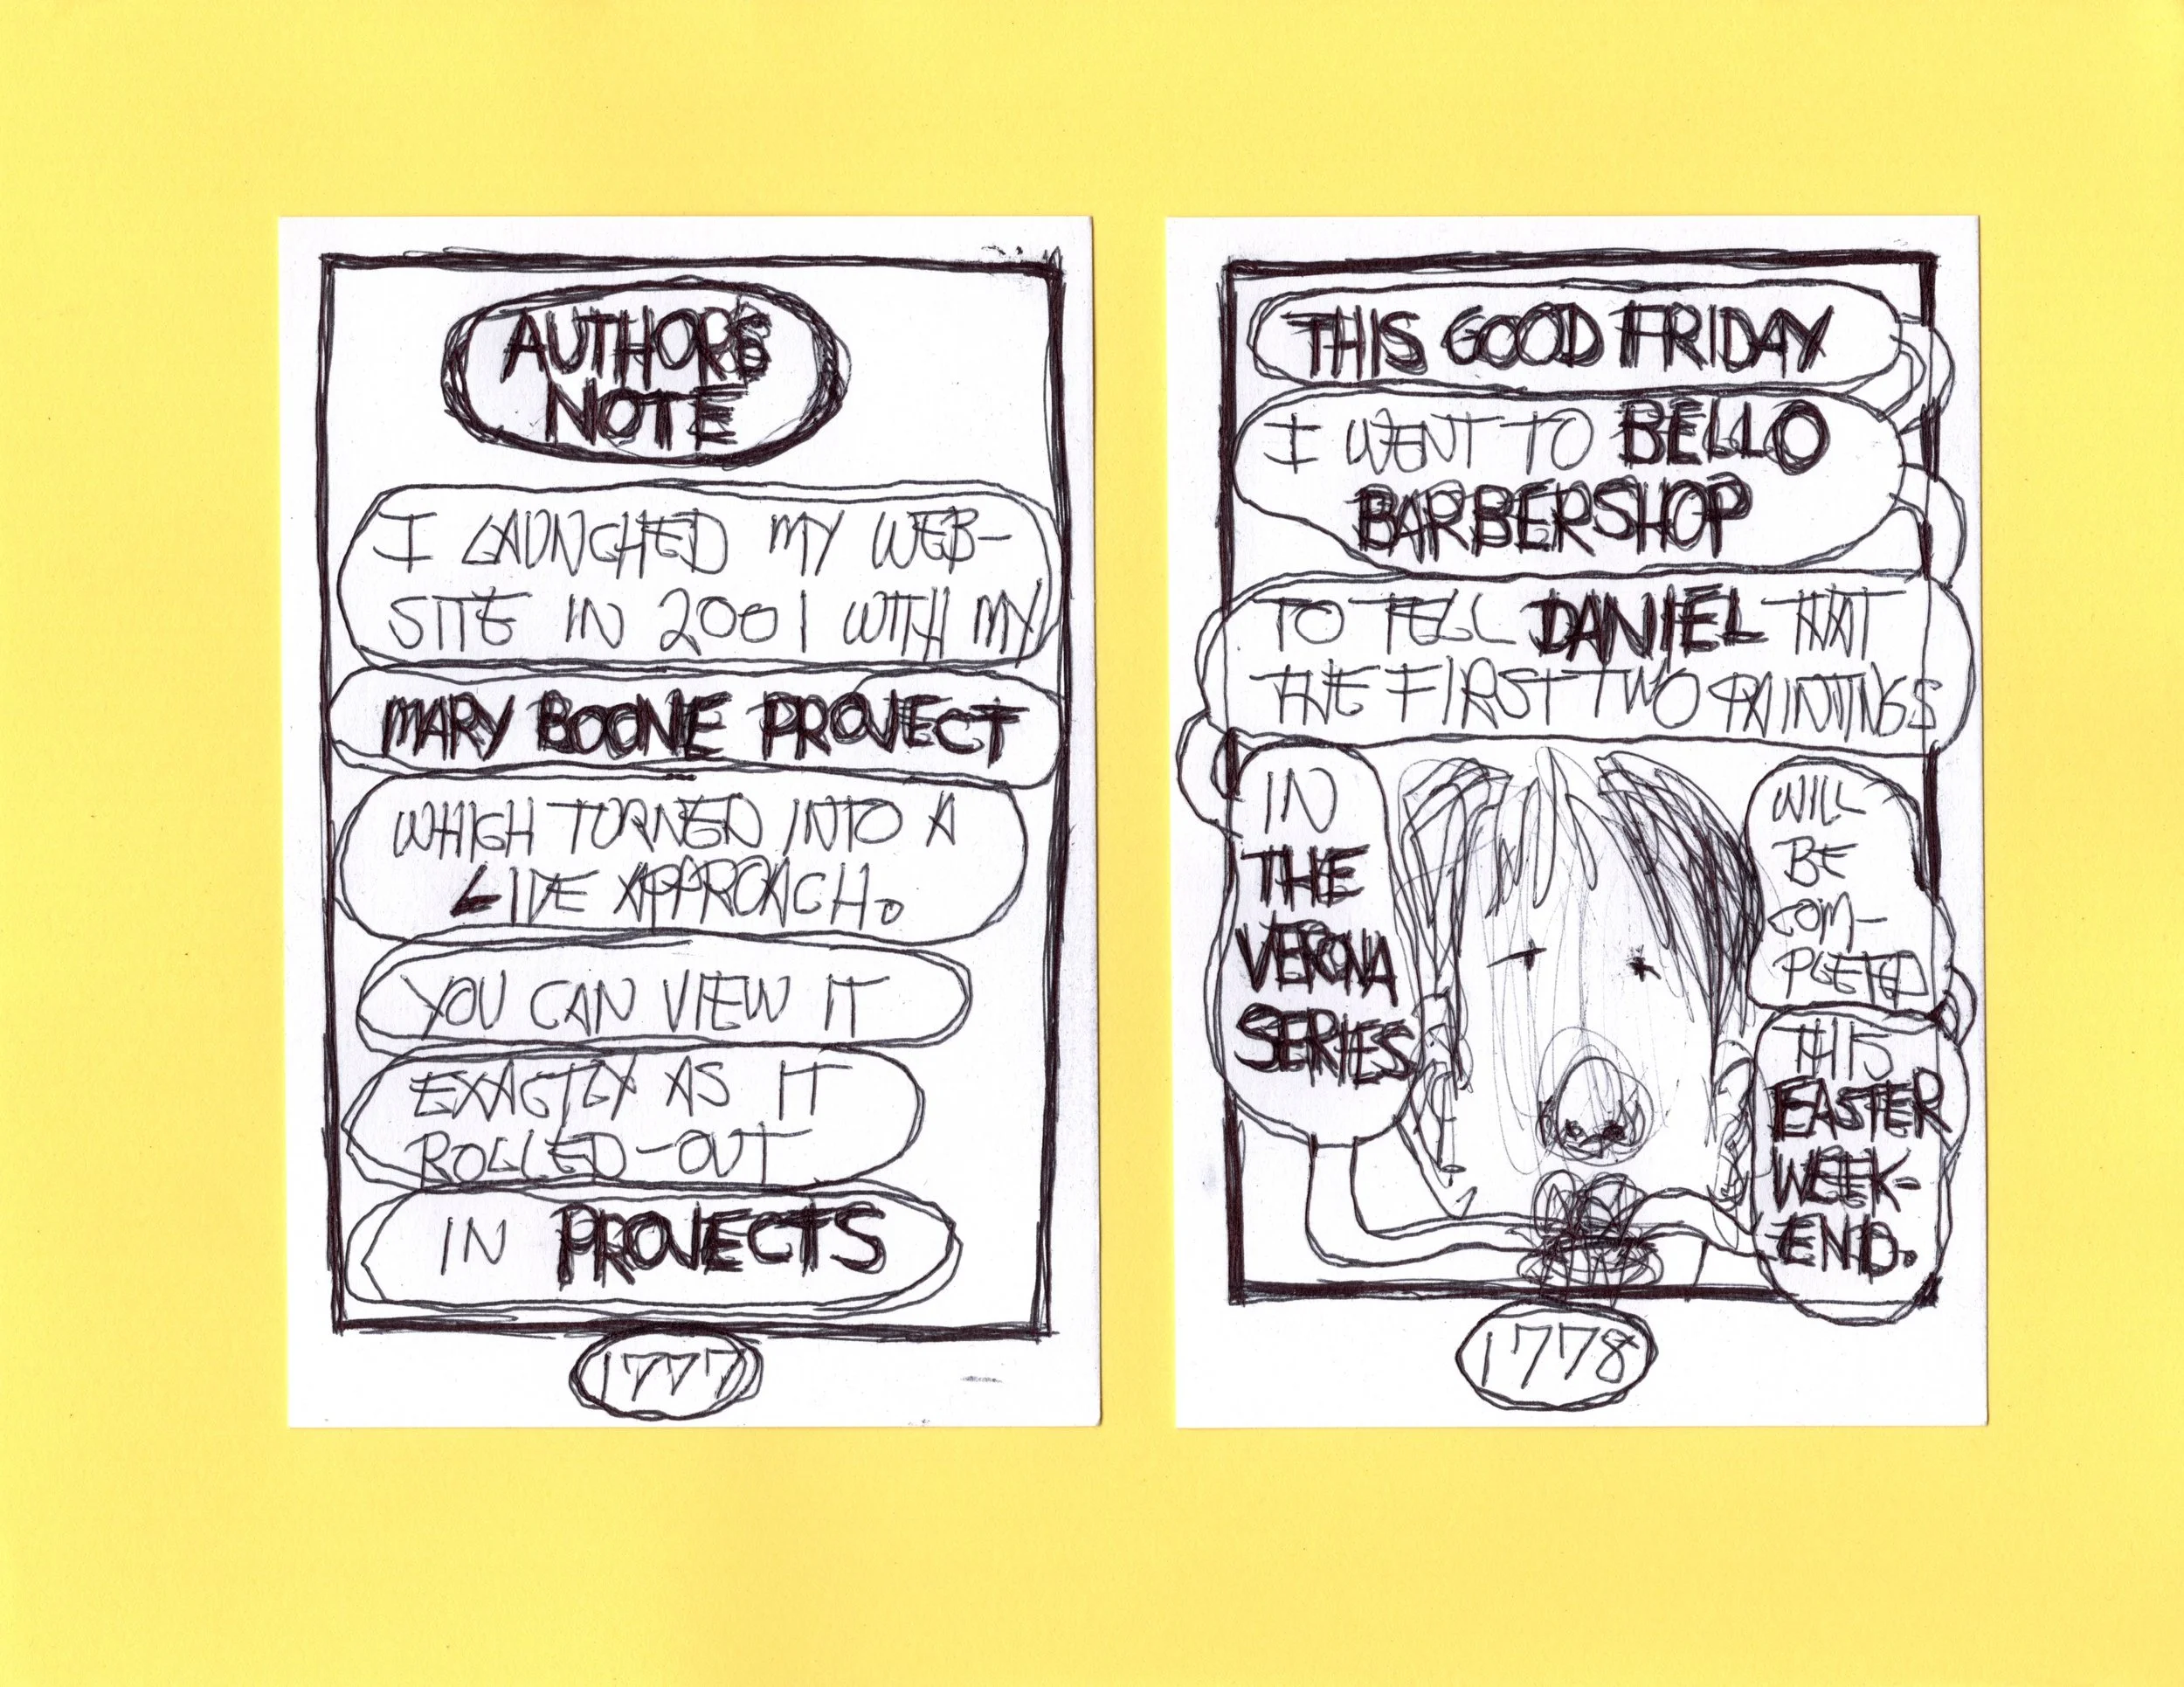 AUTHOR'S
NOTE
I LAUNCHED MY WEB-
SITE IN 2001 WITH MY
MARY BOONE PROJECT
WHICH TURNED INTO A
LIVE APPROACH.
YOU CAN VIEW IT
EXACTLY AS IT
ROLLED-OUT
IN PROJECTS
1777
THIS GOOD FRIDAY
I WENT TO BELLO
BARBERSHOP
TO TELL DANIEL THAT
THE FIRST TWO PAINTINGS
IN
THE
VERONA
SERIES
WILL
BE
COM-
PLETED
THIS
EASTER
WEEK-
END.
1778